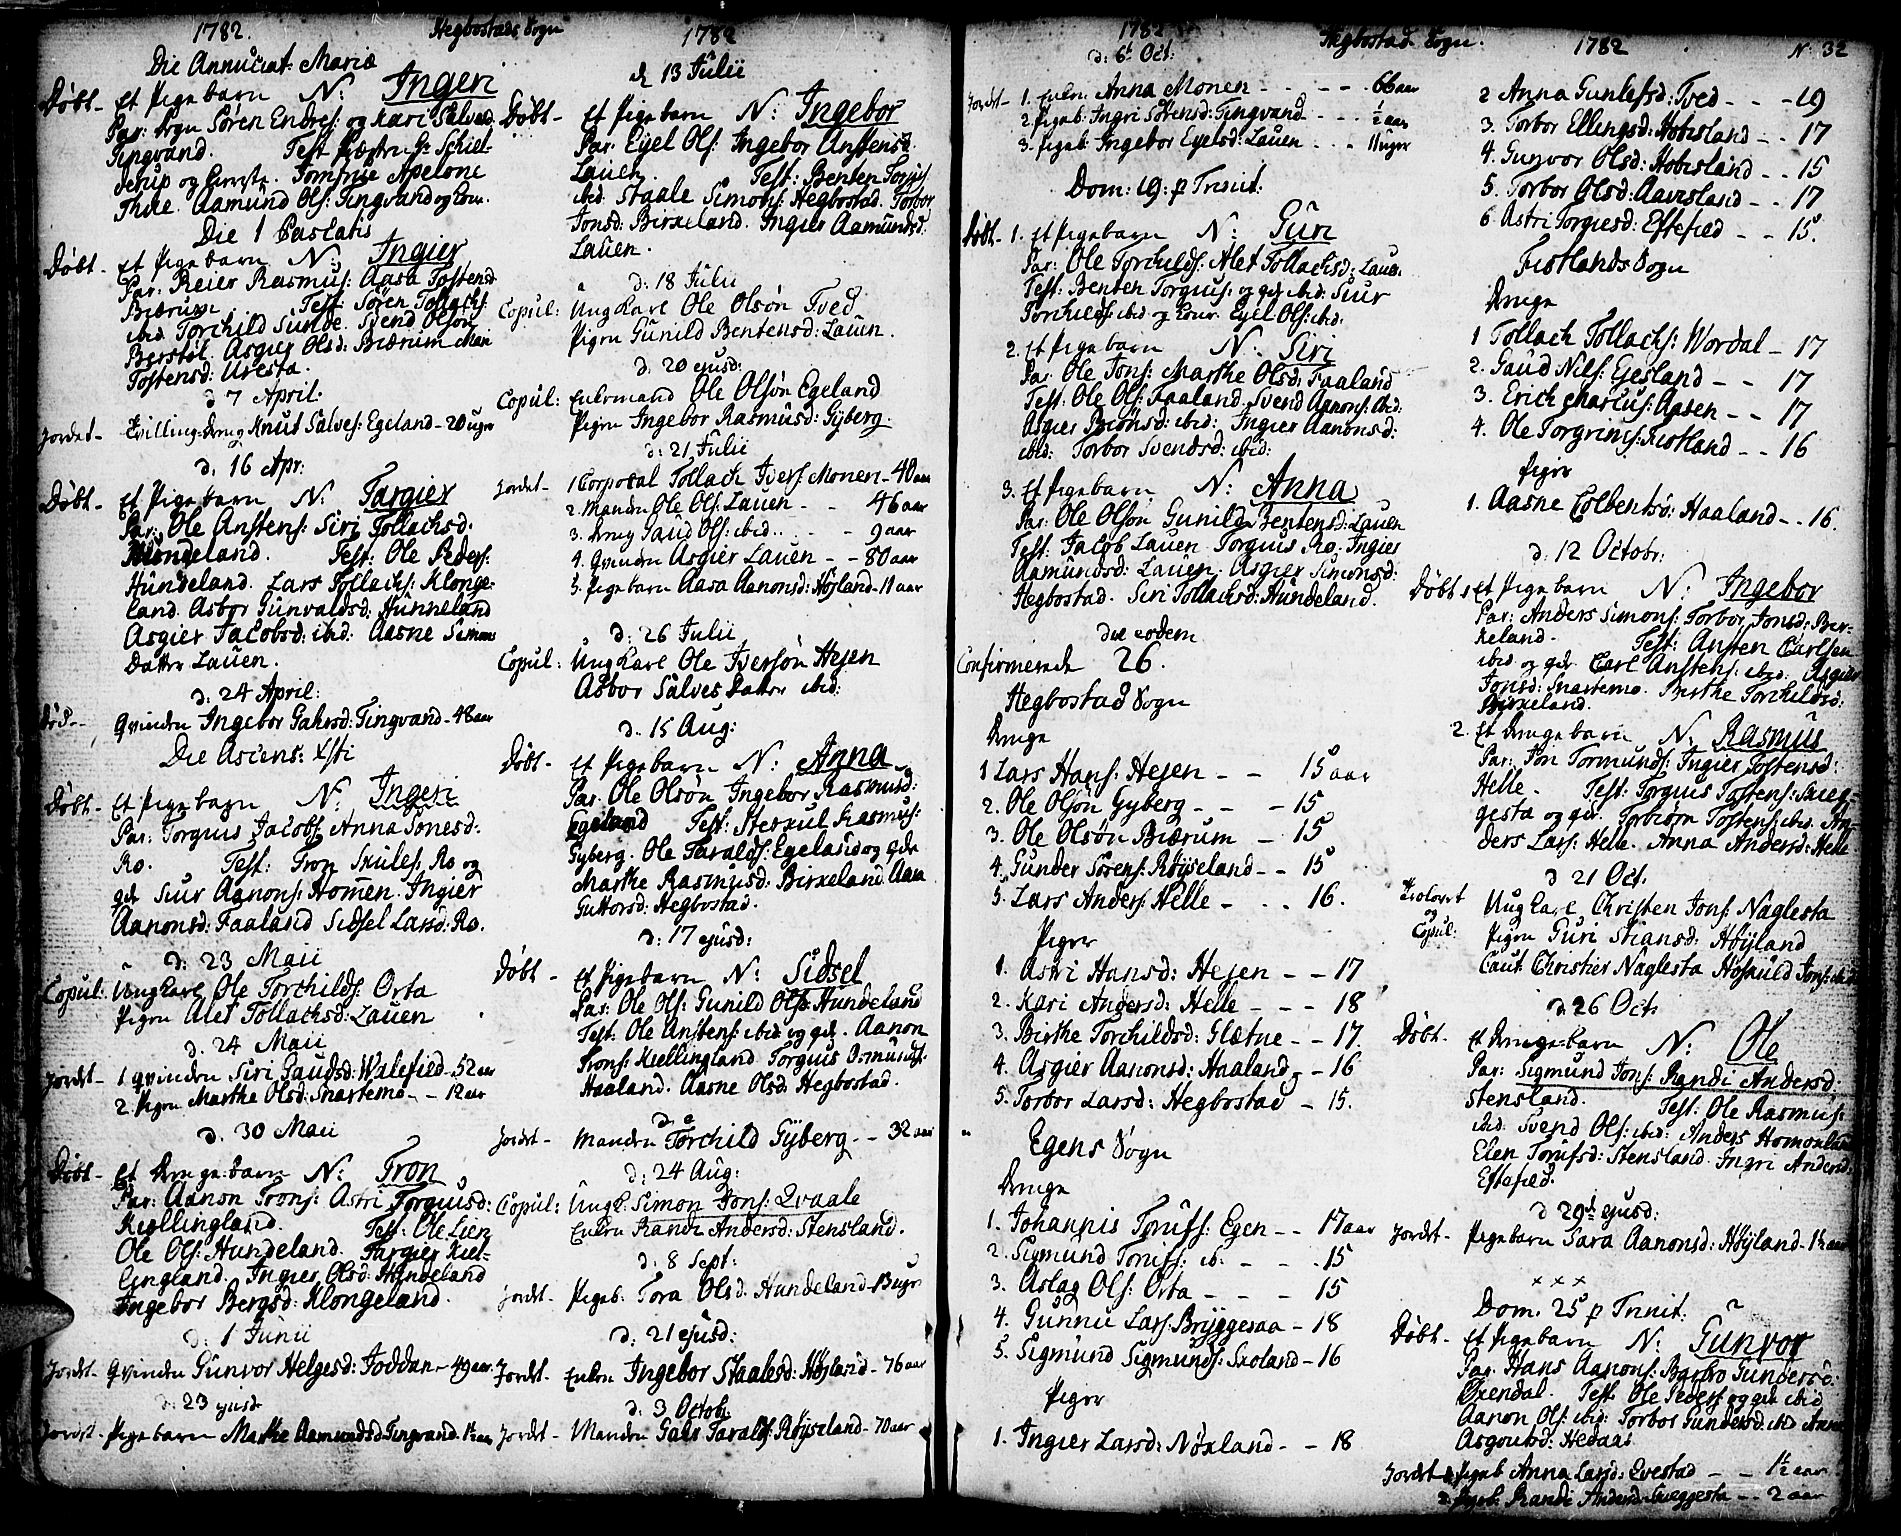 1782. Hegbostads Sogn 1782
Die Annuciat: Mariæ
Døbt - Et Pigebarn N: Ingeri
Par: Sogn Søren Endres: og Kari Salves
Tingvand. Test Præsten Hr Schiel-
derup og Kiereste. Jomfrue Apelone
Thue. Aamund Ols: Tingvand og Kone.
Die 1 Paschatis
Døbt - Et Pigebarn N: Ingier
Par: Reier Rasmus: Aasa Tostensd
Biærum. Test: Søren Tollachs:
ibid Torchild Sunde. Svend Olsøn
Berstøl. Asgier Olsd: Biærum Mari
Tostensd: Uresta.
d 7 April:
Jordet - Tvilling-Dreng Knut Salves: Egeland - 20 uger
d: 16 Apr:
Døbt - Et Pigebarn N: Targier
Par: Ole Anstens: Siri Tollachsd:
Klongeland. Test: Ole Peders:
Hundeland. Lars Tollachs: Klonge-
land. Asbor Gunvaldsd: Hunneland
Asgier Jacobsd: ibid: Aasne Simons
Datter Lauen.
d: 24 April:
Død - Qvinden Ingebor Gahrsd: Tingvand - 48 aar
Die Ascens: Xsti
Døbt - Et Pigebarn N: Ingeri
Par: Torguis Jacobs: Anna Tonesd:
Ro. Test: Tron Skules: Ro og
qde Siur Aanons: Homen. Ingier
Aanonsd: Faaland Sidsel Larsd: Ro.
d: 23 Maii
Copul: Ung Karl Ole Torchilds: Orta
Pigen Alet Tollachsd: Lauen
d: 24 Maii
Jordet - 1 Qvinden Siri Gaudsd: Walefied - 52 aar
2 Pigen Marthe Olsd: Snartemo - - 12 aar
d: 30 Maii
Døbt - Et Drengebarn N: Tron
Par: Aanon Trons: Astri Torguisd:
Kiellingland. Test: Ole Lien
Ole Ols: Hundeland. Targier Kiel-
lingland. Ingier Olsd: Hundeland
Ingebor Bergsd: Klongeland.
d: 1 Junii
Jordet - Qvinden Gunvor Helgesd: Joddan - 49 aar
d: 23 ejusd
Jordet - Pigebarn Marthe Aamundsd Tingvand - 1½ aar
d 13 Julii
Døbt - Et Pigebarn N: Ingebor
Par: Eyel Ols: Ingebor Anstensd
Lauen. Test: Benten Torguis
ibid Staale Simons: Hegbostad. Torbor
Jonsd: Birkeland. Ingier Aamundsd.
Lauen.
d: 18 Julii
Copul: Ung Karl Ole Olsøn Tved
Pigen Gunild Bentensd: Lauen.
d: 20 ejusd:
Copul: Enkemand Ole Olsøn Egeland
Pigen Ingebor Rasmusd: Gyberg
d: 21 Julii
Jordet - 1 Corporal Tollach Ivers Monen - 40 aar
2. Manden Ole Ols: Lauen - - 46 aar
3. Dreng Gaud Ols: ibid . . - - 9 aar
4. Qvinden Asgier Lauen - - 80 aar
5. Pigebarn Aasa Aanonsd: Høyland - 11 aar
d: 26 Julii
Copul: Ung Karl Ole Iversøn Hejen
Asbor Salves Datter ibid:
d: 15 Aug:
Døbt - Et Pigebarn N: Anna
Par: Ole Olsøn Ingebor Rasmusd:
Egeland Test: Sterkul Rasmus:
Gyberg. Ole Taralds: Egeland og qde
Marthe Rasmusd: Birkeland Aasa
Guttorsd: Hegbostad.
d: 17 ejusd:
Døbt - Et Pigebarn N: Sidsel
Par: Ole Ols: Gunild Olsd: Hundeland
Test: Ole Anstens: ibid og qde. Aanon
Trons: Kiellingland Torguis Osmunds:
Haaland. Aasne Olsd: Hegbostad.
d: e
Jordet - Manden Torchild Gyberg - - 32 aar
d: 24 Aug:
Copul: Ung K. Simon Jons: Qvaale
Enken Randi Andersd: Stensland.
d: 8 Sept:
Jordet - Pigeb. Tora Olsd. Hundeland - 13 uger
d: 21 ejusd:
Jordet - Enken Ingebor Staalesd: Høyland - 76 aar
d: 3 Octobr.
Jordet - Manden Gahr Taralds: Røyseland - 70 aar
1782 Hegbostad Sogn: 1782 N: 32
d: 6t Oct:
Jordet - 1. Enken Anna Monen - - - - 66 aar
2. Pigeb: Ingri Sørensd: Tingvand - - - ½ aar
3. Pigeb: Ingebor Eyelsd: Lauen - - - 11 uger
Dom: 19: p Trinit:
Døbt - 1. Et Pigebarn N: Guri
Par: Ole Torchilds: Alet Tollachsd: Lauen
Test: Benten Torguis: og qde ibid: Siur
Torchilds: ibid og Kone. Eyel Ols: ibid:
2. Et Pigebarn N: Siri
Par: Ole Jons: Marthe Olsd: Faaland
Test: Ole Ols: Faaland. Svend Aanons: ibid:
Asgier Biønsd: ibid: Ingier Aanonsd:
ibid: Torbor Svendsd: ibid:
3. Et Pigebarn N: Anna
Par: Ole Olsøn Gunild Bentensd: Lauen
Test: Jacob Lauen. Torguis Ro. Ingier
Aamundsd: Lauen. Asgier Simonsd:
Hegbostad. Siri Tollachsd: Hundeland.
Die eodem
Confirmerede 26.
Hegbostad Sogn
Drenge
1 Lars Hans: Hejen - - 15 aar
2. Ole Olsøn Gyberg - - - 15
3. Ole Olsøn Biærum - 15
4. Gunder Sørens: Røyseland - - 15
5. Lars Anders: Helle - - - 16.
Piger
1. Astri Hansd: Hejen - - 17
2. Kari Andersd: Helle - - - 18
3. Birthe Torchildsd: Glætne - - 17.
4. Asgier Aanonsd: Haaland - - 16
5. Torbor Larsd: Hegbostad - 15.
Egens Sogn
Drenge
1. Johannis Torufs: Egen - - 17 aar
2. Sigmund Torufs: ib. - - . 15
3. Aslag Ols: Orta - - - 15
4. Gunnu Lars: Bryggesaa - 18
5. Sigmund Sigmunds: Skoland - 16
Piger
1. Ingier Larsd: Nøkland - - 18
2 Anna Gunlefsd: Tved - - - 19
3. Torbor Ellingsd: Hobesland - - 17
4. Gunvor Olsd: Hobesland - - 15
5. Torbor Olsd: Aavesland - - 17
6. Astri Torgiesd: Eftefied - - 15.
Fiotlands Sogn
Drenge
1 Tollach Tollachs: Wordal - 17
2. Gaud Nils: Ejesland - - 17
3. Erich Marcus: Aasen - - 17
4. Ole Torgrims: Fiotland - - 16
Piger
1. Aasne Colbentsd: Haaland - - 16.
d: 12 Octobr:
Døbt 1 Et Pigebarn N: Ingebor
Par: Anders Simons: Torbor Jonsd: Bir-
keland. Test: Ansten Carlsen
ibid og qde Carl Anstens: ibid: Asgier
Jonsd: Snartemo. Birthe Torchildsd:
Birkeland.
2. Et Drengebarn N. Rasmus
Par: Jon Tormunds: Ingier Tostensd:
Helle. Test: Torguis Tostens: Skieg-
gesta og qde. Torbiørn Tostens: ibid. An-
ders Lars: Helle. Anna Andersd: Helle
d 21 Oct.
Trolovet og Copul: Ung Karl Christen Jons: Naglesta
Pigen Guri Stiansd: Høyland
Caut. Christier Naglesta Hoskuld Jons: ibid
d. 26 Oct:
Døbt - Et Drenge-barn N: Ole
Par: Sigmund Jons: Randi Andersd:
Stensland. Test: Ole Rasmus:
ibid. Svend Ols: ibid: Anders Homonland
Elen Torufsd: Stensland. Ingri Andersd.
Eftefied.
d 29de ejusd:
Jordet - Pigebarn Sara Aanonsd: Høyland - 1½ aar
x x x
Dom. 25 p Trinit:
Døbt - Et Pigebarn N: Gunvor
Par: Hans Aanons: Barbro Gundersd:
Oxendal. Test: Ole Peders og qde ibid
Aanon Ols: ibid: Torbor Gundersd: ibid Anna
Asgoutsd: Hedaas
Jordet - 1 Pigeb Anna Larsd: Qvestad - - 1½ aar
2. Pigeb: Randi Andersd: Skieggesta - - 2 aar